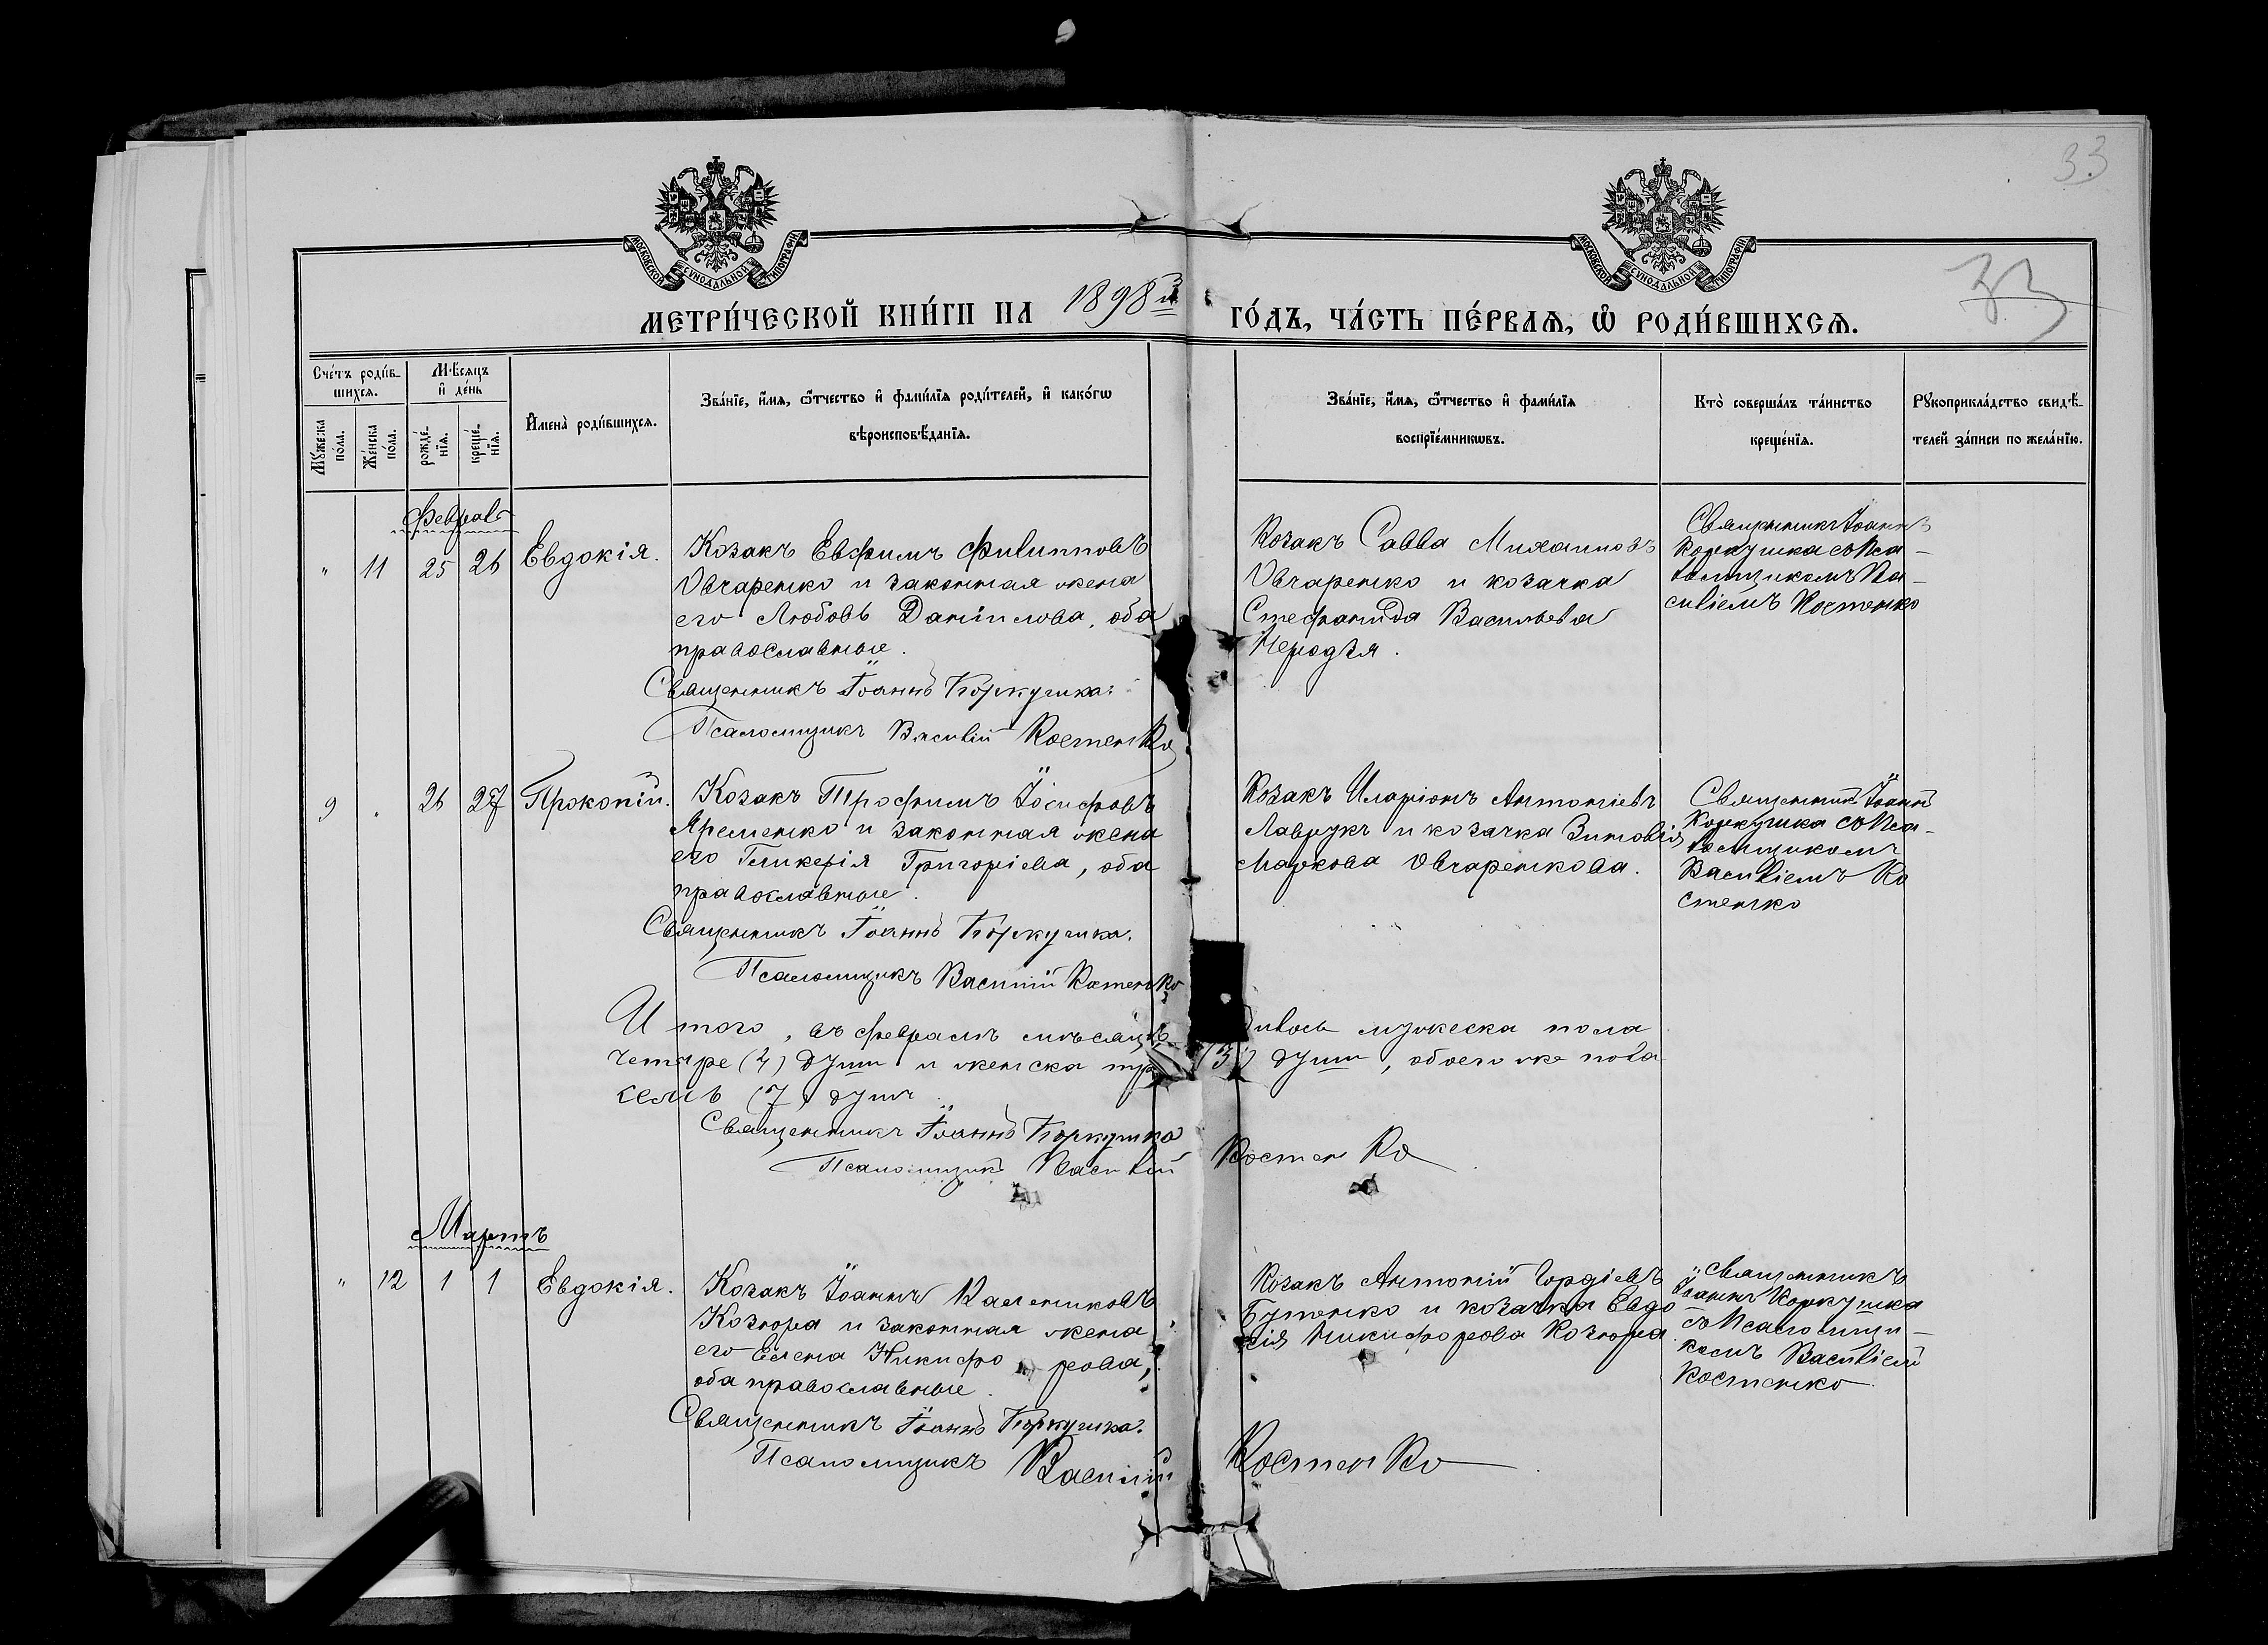 33
33
МОСКОВСКОЙ СѴНОДАЛЬНОЙ ТИПОГРАФІИ
МОСКОВСКОЙ СѴНОДАЛЬНОЙ ТИПОГРАФІИ
МЕТРИ́ЧЕСКОЙ КНИ́ГИ НА 1898й ГО́ДЪ, ЧА́СТЬ ПЕ́РВАѦ, Ѽ РОДИ́ВШИХСѦ.
Сче́тъ роди́в-
шихсѧ.
Мꙋ́жеска
по́ла.
Же́нска
по́ла.
Мѣ́сѧцъ
и҆ де́нь
рожде́-
нїѧ.
креще́-
нїѧ.
И҆мена̀ роди́вшихсѧ.
Зва́нїе, и҆́мѧ, ѻ҆́тчество и҆ фами́лїѧ роди́телей, и҆ како́гѡ
вѣроисповѣ́данїѧ.
Зва́нїе, и҆́мѧ, ѻ҆́тчество и҆ фами́лїѧ
воспрїе́мникѡвъ.
Кто̀ соверша́лъ та́инство
креще́нїѧ.
Рꙋкоприкла́дство свидѣ́-
телей за́писи по жела́нїю.
Февраль
" 11 25 26 Евдокія.
Козакъ Евфимъ Филипповъ
Овчаренко и законная жена
его Любовь Даніилова, оба
православные.
Священникъ Іоаннъ Коркушка.
Псаломщикъ Василій Костенко
Козакъ Савва Михаиловъ
Овчаренко и козачка
Стефанида Васильева
Неродѣя.
Священникъ Іоаннъ
Коркушка съ Пса-
ломщикомъ Ва-
силіемъ Костенко
9 " 26 27 Прокопій.
Козакъ Трофимъ Іосифовъ
Яременко и законная жена
его Гликерія Григоріева, оба
православные.
Священникъ Іоаннъ Коркушка.
Псаломщикъ Василій Костенко
Козакъ Иларіонъ Антоніевъ
Лаврукъ и козачка Зиновія
Маркова Овчаренкова.
Священникъ Іоаннъ
Коркушка съ Пса-
ломщикомъ
Василіемъ Ко
стенко
Итого, въ февралѣ мѣсяцѣ дилось мужеска пола
четыре (4) души и женска три (3) души, обоего же пола
семь (7) душъ.
Священникъ Іоаннъ Коркушка
Псаломщикъ Василій Костенко
Мартъ
" 12 1 1 Евдокія.
Козакъ Іоаннъ Калениковъ
Козюра и законная жена
его Елена Никифорова,
оба православные.
Священникъ Іоаннъ Коркушка.
Псаломщикъ Василій Костенко
Козакъ Антоній Гордіевъ
Бутенко и козачка Евдо
кія Никифорова Козюра.
Священникъ
Іоаннъ Коркушка
съ Псаломщи-
комъ Василіемъ
Костенко